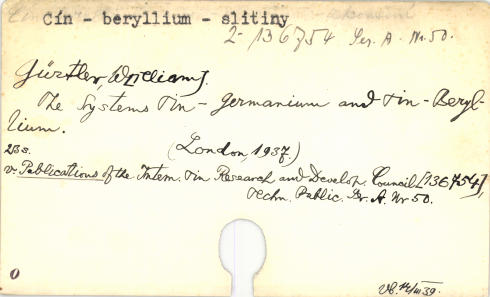 Cín - beryllium - slitiny
2-136754 Ser. A. Nr. 50.
Gürtler, W[illiam].
The Systems Tin - Germanium and Tin - Beryl-
lium.
(London, 1937.)
23 s.
v Publications of the Intern. Tin Research and Develop. Council [136754],
Techn. Public. Sr. A. Nr 50.
0
Vb. 14/III 39.